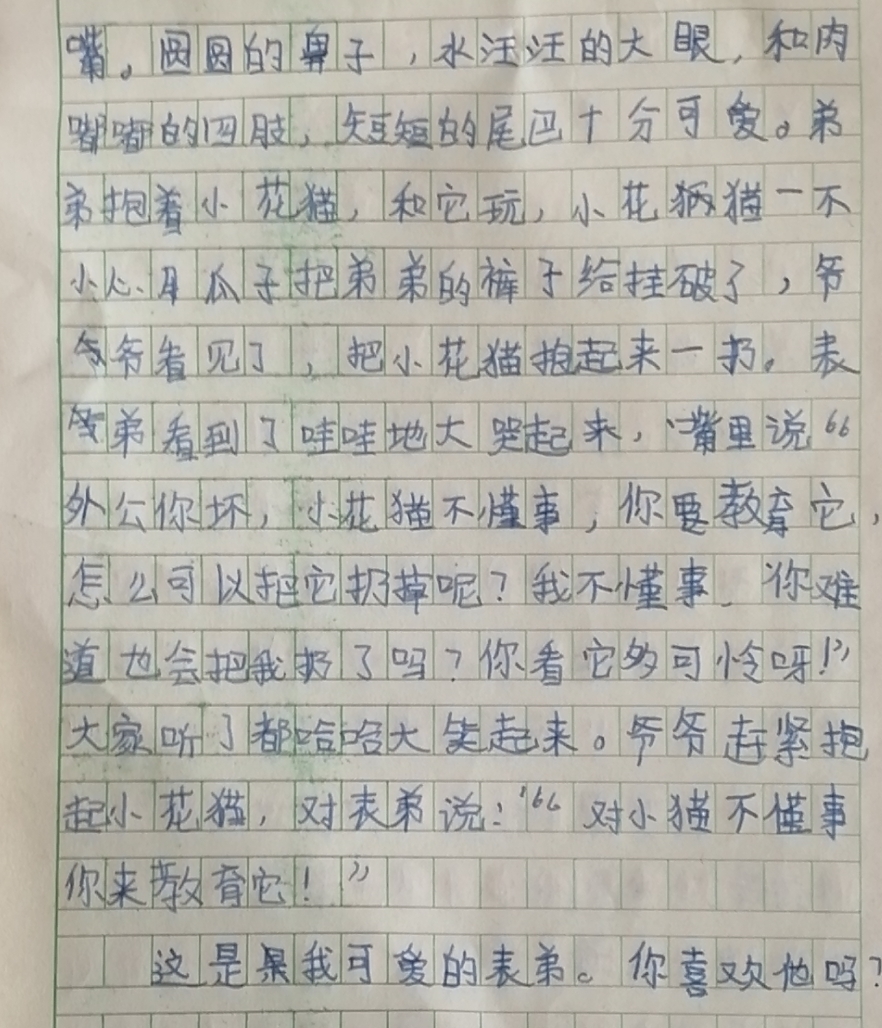 嘴。圆圆的鼻子，水汪汪的大眼，和肉
嘟嘟的四肢，短短的尾巴十分可爱。弟
弟抱着小花猫，和它玩，小花猫一不
小心爪子把弟弟的裤子给挂破了，爷
爷看见了，把小花猫抱起来一扔。表
弟看到了哇哇地大哭起来，嘴里说“
外公你坏，小花猫不懂事，你要教育它，
怎么可以把它扔掉呢？我不懂事、你难
道也会把我扔了吗？你看它多可怜呀！”
大家听了都哈哈大笑起来。爷爷赶紧抱
起小花猫，对表弟说：“对小猫不懂事
你来教育它！”
这是我可爱的表弟。你喜欢他吗？